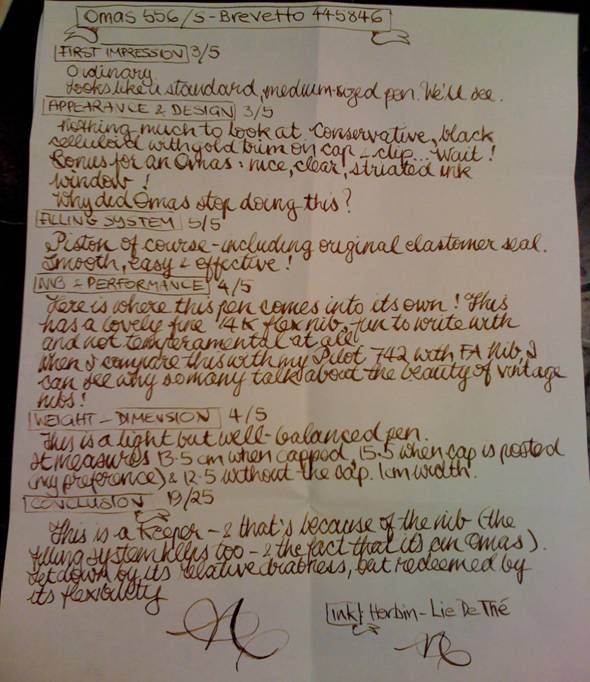 Omas 556/s - Brevetto 445846
FIRST IMPRESSION 3/5
Ordinary.
Looks like a standard, medium-sized pen. We'll see.
APPEARANCE & DESIGN 3/5
Nothing much to look at. Conservative, black
celluloid with gold trim on cap - clip... Wait!
Bonus for an Omas: nice, clear, striated ink
window!
Why did Omas stop doing this?
FILLING SYSTEM 5/5
Piston of course - including original elastomer seal.
Smooth, easy & effective!
NIB & PERFORMANCE 4/5
Here is where this pen comes into its own! This
has a lovely fine 14K flex nib, fun to write with
and not temperamental at all!
When I compare this with my Pilot 742 with FA Nib, I
can see why so many talk about the beauty of vintage
nibs!
WEIGHT - DIMENSION 4/5
This is a light but well-balanced pen.
It measures 13.5 cm when capped, 15.5 when cap is posted
(my preference) & 12.5 without the cap. 1cm width.
CONCLUSION 19/25
This is a Keeper - & that's because of the nib (the
filling system helps too - & the fact that it's an Omas).
Let down by its relative drabness, but redeemed by
its flexibility
ink: Herbin - Lie De Thé